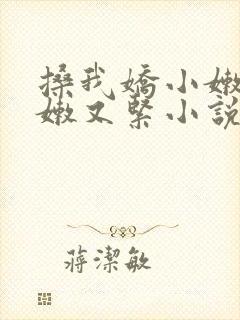 搡我嬌小嫩
嫩又緊小說
蔣潔敏